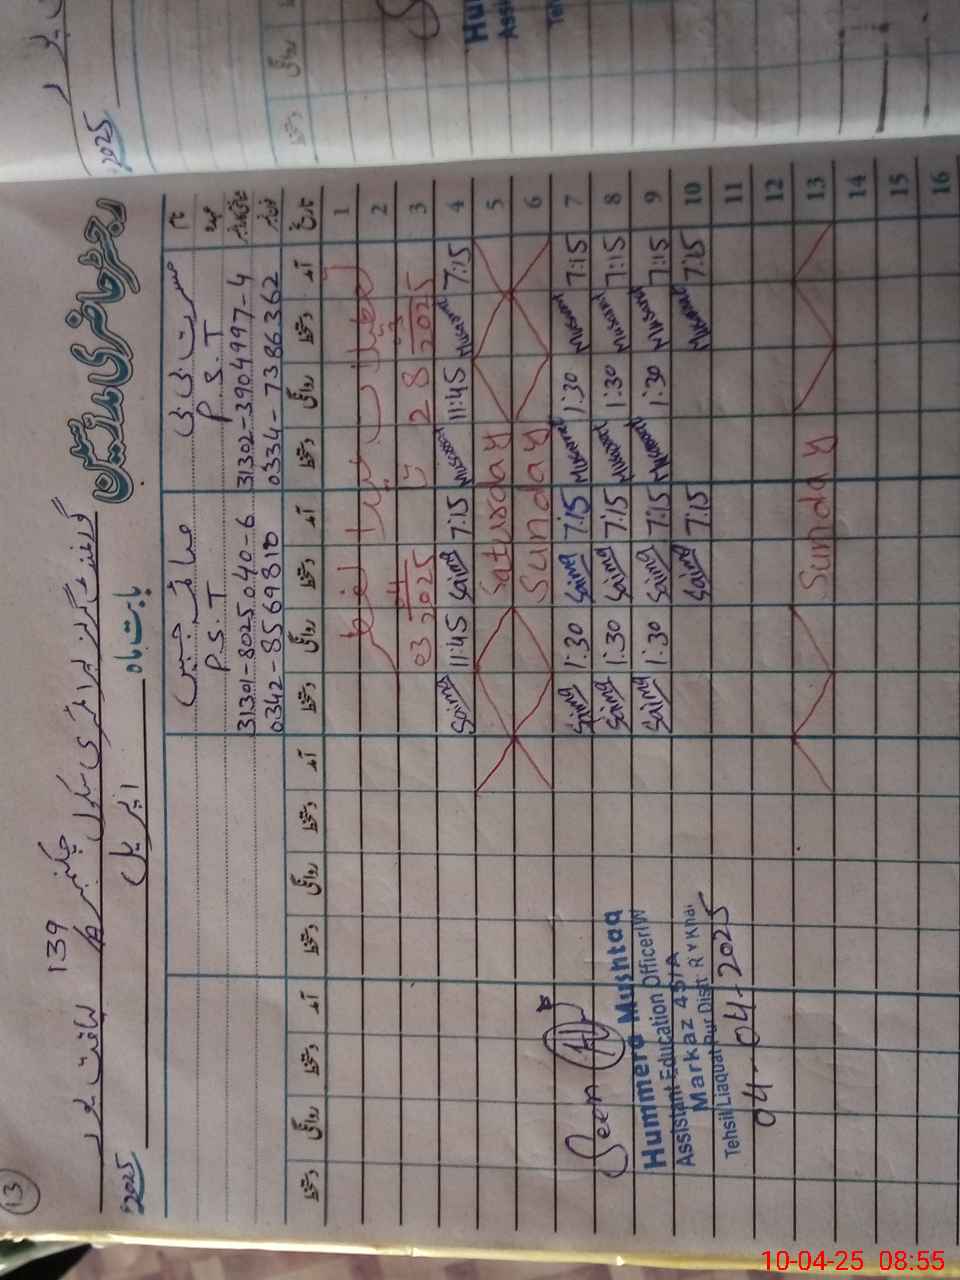 13
139
گورنمنٹ گرلز پرائمری سکول چک نمبر
لیاقت پور
رجسٹر حاضری مدرسین
بابت ماہ اپریل 2025
نام مسرت بی بی
عہدہ P.S.T P.S.T
31302-3904997-4 31301-8025040-6
0334-7386362 0342-8569810
تاریخ آمد دستخط روانگی دستخط آمد دستخط روانگی دستخط آمد دستخط روانگی دستخط آمد دستخط روانگی دستخط
1
2 تعطیلات عید الفطر
3 28 2025 03 2025
4 7:15 Musarrat 11:45 Musarrat 7:15 Saima 11:45 Saima
5 Saturday
6 Sunday
7 7:15 Musarrat 1:30 Musarrat 7:15 Saima 1:30 Saima
8 7:15 Musarrat 1:30 Musarrat 7:15 Saima 1:30 Saima
9 7:15 Musarrat 1:30 Musarrat 7:15 Saima 1:30 Saima
10 7:15 Musarrat 7:15 Saima
11
12
13 Sunday
14
15
16
Seen
Hummera Mushtaq
Assistant Education Officer(W)
Markaz 45/A
Tehsil Liaquat Pur Distt R Y Khan
04-04-2025
2025
Hu
Assi
Teh
روانگی
دستخط
10-04-25 08:55